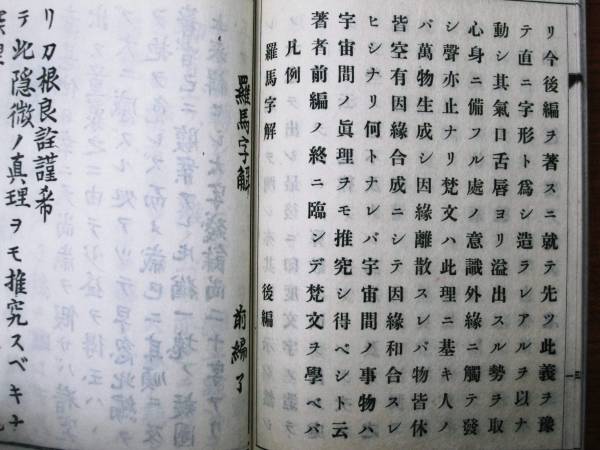 リ今後編ヲ著スニ就テ先ツ此義ヲ豫
テ直ニ字形ト爲シ造ラレアルヲ以ナ
動シ其氣口舌唇ヨリ溢出スル勢ヲ取
心身ニ備フル處ノ意識外緣ニ觸テ發
シ聲亦止ナリ梵文ハ此理ニ基キ人ノ
バ萬物生成シ因緣離散スレバ物皆休
皆空有因緣合成ニシテ因緣和合スレ
ヒシナリ何トナレバ宇宙間ノ事物ハ
宇宙間ノ眞理ヲモ推究シ得ベシト云
著者前編ノ終ニ臨ンデ梵文ヲ學ベバ
凡例
羅馬字解 後編
羅馬字解 前編了
リ刀根良詮謹希
テ此隱微ノ真理ヲモ推究スベキナ